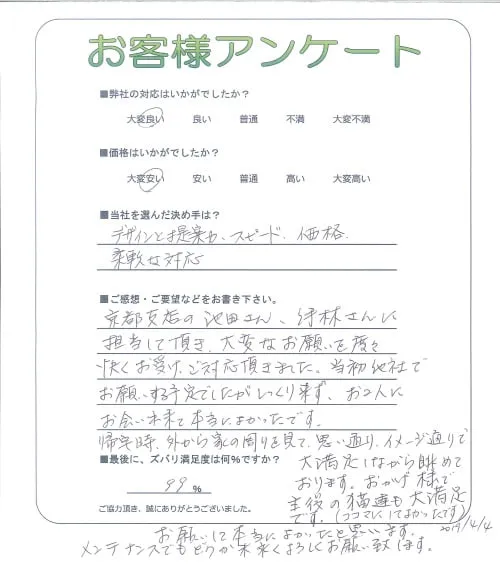 お客様アンケート
■弊社の対応はいかがでしたか？
大変良い 良い 普通 不満 大変不満
■価格はいかがでしたか？
大変安い 安い 普通 高い 大変高い
■当社を選んだ決め手は？
デザインと提案力、スピード、価格
柔軟な対応
■ご感想・ご要望などをお書き下さい。
京都支店の池田さん、竹林さんに
担当して頂き、大変なお願いを度々
快くお受け、ご対応頂きました。当初他社で
お願いする予定でしたがしっくり来ず、お2人に
お会い出来て本当によかったです。
帰宅時、外から家の周りを見て、思い通り、イメージ通りで
■最後に、ズバリ満足度は何%ですか？
大満足しながら眺めて
おります。おかげ様で
99 %
主役の猫達も大満足
です。(ココマにしてよかったです)
ご協力頂き、誠にありがとうございました。
2019/4/4
お願いして本当によかったと思います。
メンテナンスでもどうか末永くよろしくお願い致します。